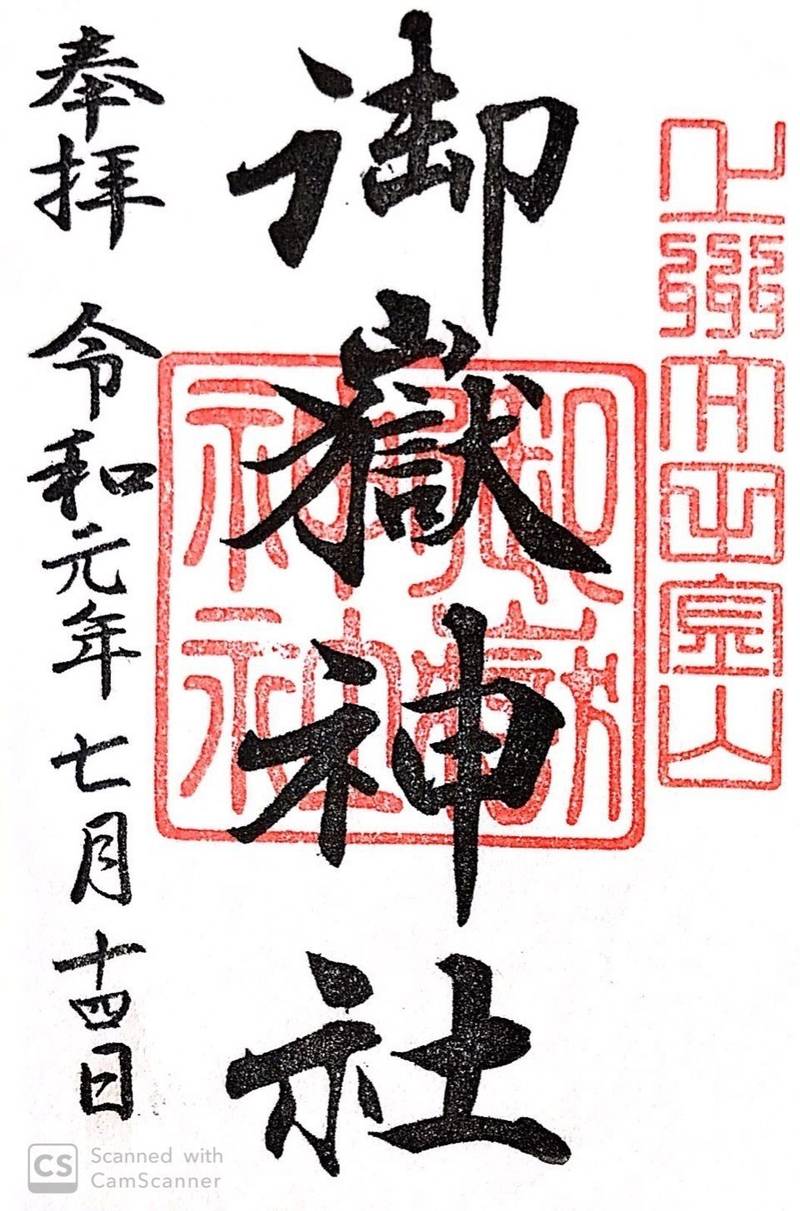 御嶽神社
御嶽
神社
奉拝 令和元年七月十四日
CS Scanned with
CamScanner